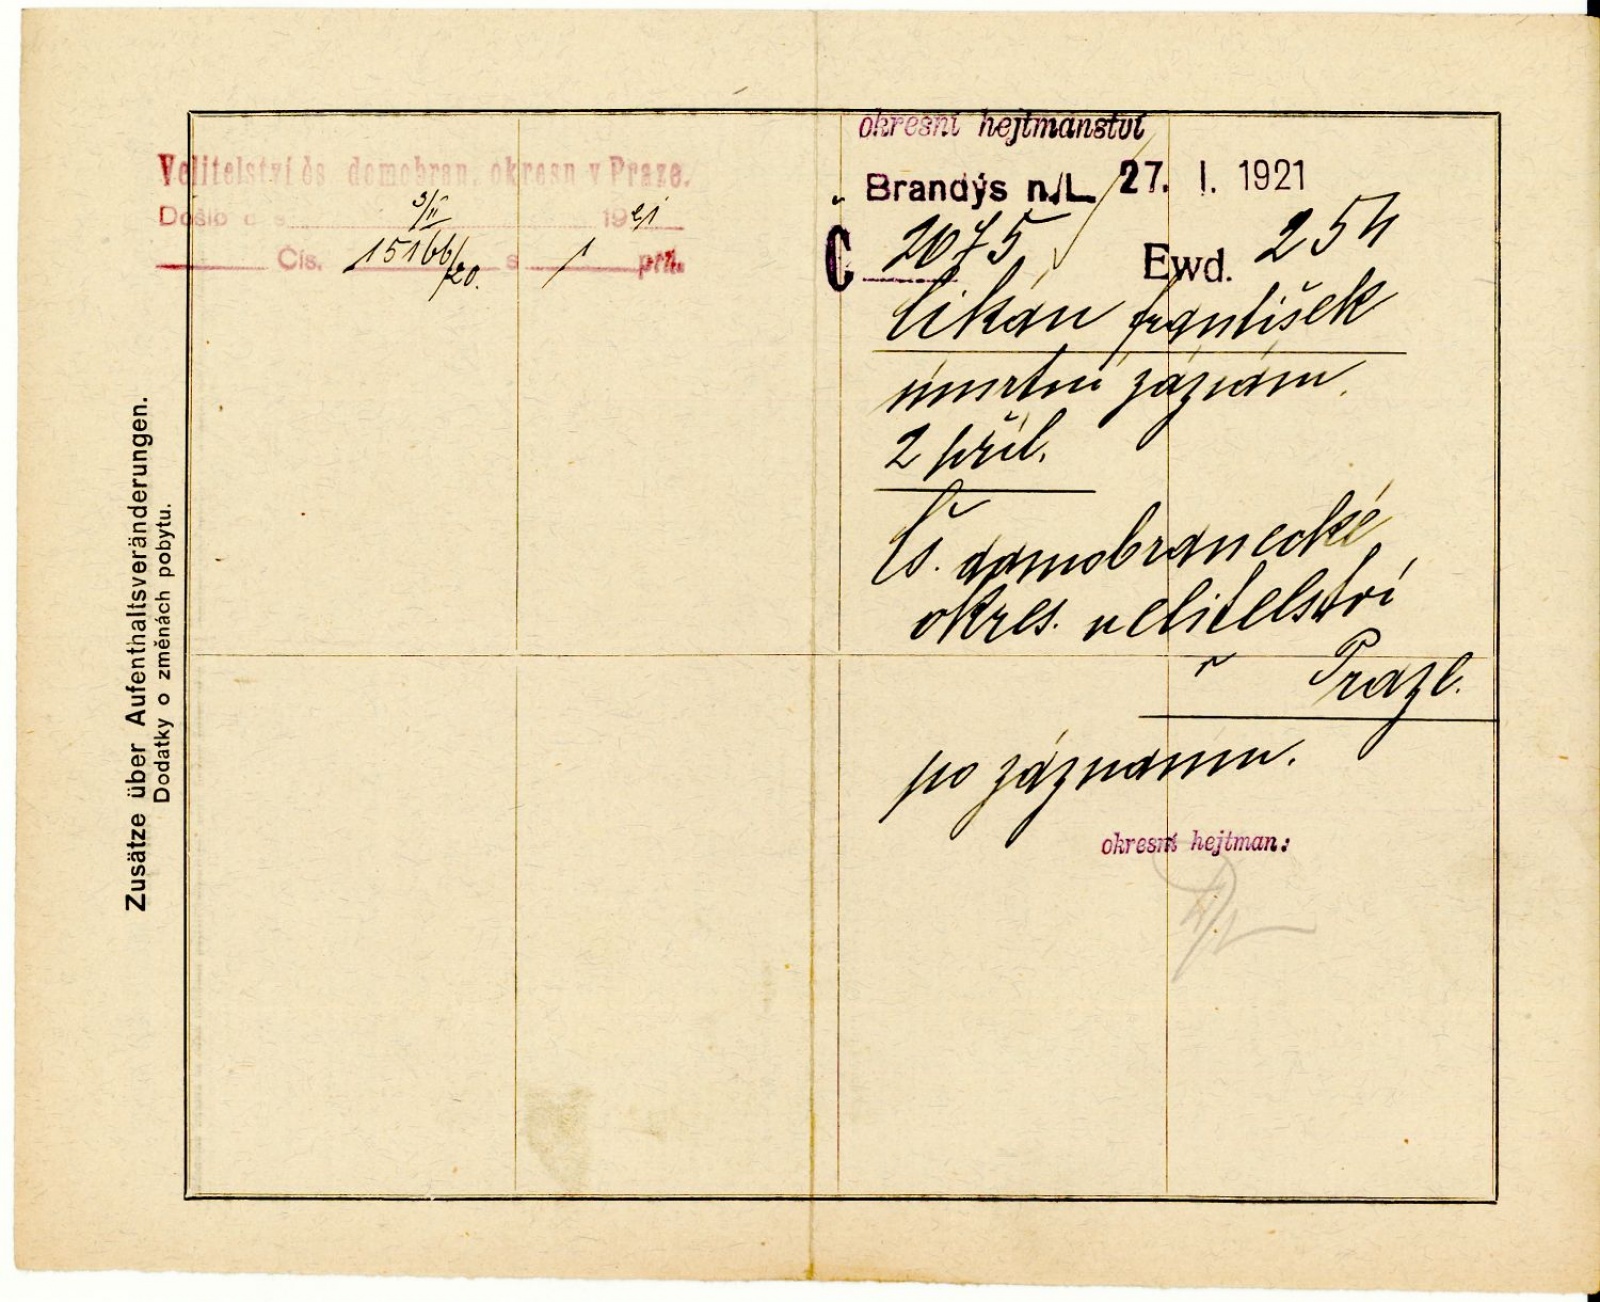 Zusätze über Aufenthaltsveränderungen.
Dodatky o změnách pobytu.
Velitelství čs domobran. okresn v Praze.
Došlo 3/II 1921
Čís. 15166/20. s 1 pril.
okresní hejtmanství
Brandýs n./L. 27. I. 1921
Č 2075 Ewd. 254
Cikán František
úmrtní záznam.
2 příl.
Čs. domobranecké
okres. velitelství
v Praze.
po záznamu.
okresní hejtman: